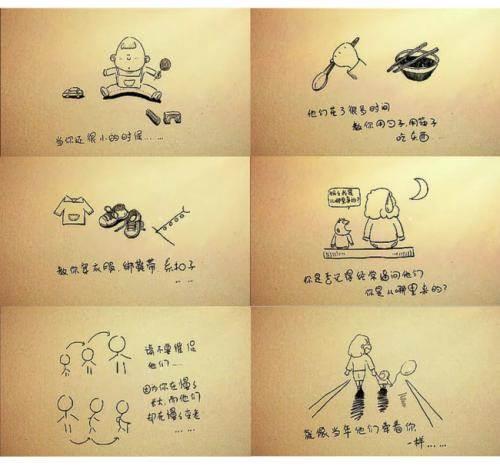 当你还很小的时候……
他们花了很多时间
教你用勺子,用筷子
吃东西
教你穿衣服.绑鞋带.系扣子
……
妈妈我是
从哪里来的?
你是否记得经常逼问他们
你是从哪里来的?
请不要催促
他们……
因为你在慢慢
长大,而他们
却在慢慢变老
……
就像当年他们牵着你
一样……